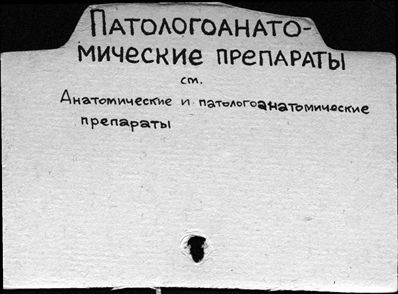 ПАТОЛОГОАНАТО-
МИЧЕСКИЕ ПРЕПАРАТЫ
см.
Анатомические и патологоанатомические
препараты